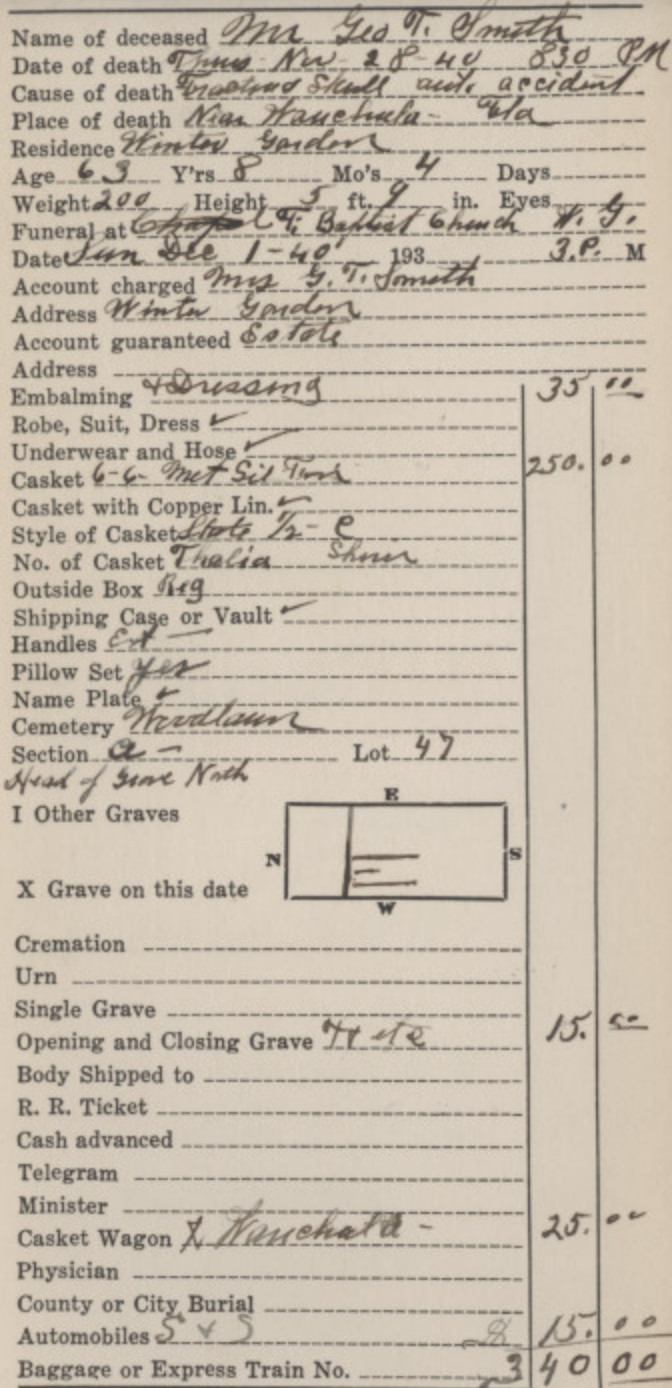 Name of deceased Mr Geo T. Smith
Date of death Thurs Nov - 28-40 830 PM
Cause of death Skull auto accident
Place of death Near Wauchula - Fla
Residence Winter Garden
Age 63 Y'rs 8 Mo's 4 Days
Weight 200 Height 5 ft. 9 in. Eyes
Funeral at Baptist Church W. G.
Date Sun Dec 1-40 193 3.P. M
Account charged Mrs G. T. Smith
Address Winter Garden
Account guaranteed Estate
Address
Embalming & Dressing 35 00
Robe, Suit, Dress ✓
Underwear and Hose ✓
Casket 6-6- Met Sil 250. 00
Casket with Copper Lin. ✓
Style of Casket State 1/2 - C
No. of Casket Thalia
Outside Box Reg
Shipping Case or Vault ✓
Handles Ext -
Pillow Set yes
Name Plate ✓
Cemetery Woodlawn
Section a - Lot 47
Head of Grave North
I Other Graves
E
N
S
X Grave on this date
W
Cremation
Urn
Single Grave
Opening and Closing Grave etc 15. 00
Body Shipped to
R. R. Ticket
Cash advanced
Telegram
Minister
Casket Wagon Wauchula - 25. 00
Physician
County or City Burial
Automobiles S & S 15. 00
Baggage or Express Train No. 340 00